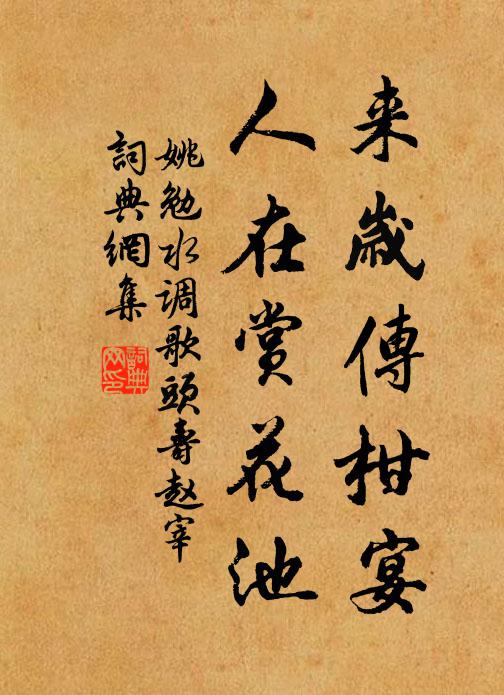 来歲傳柑宴
人在赏花池
姚勉水调歌頭壽赵宰
詞典網集
詞典网印